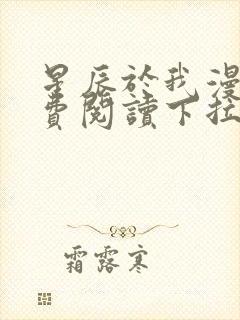 星辰於我漫
費閱讀下拉
霜露寒